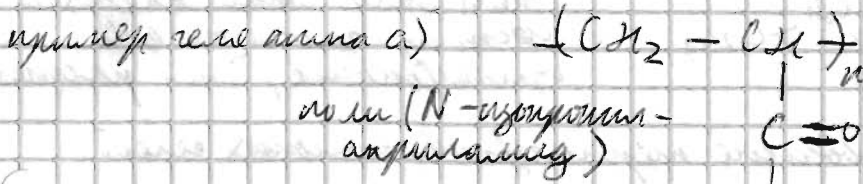 пример геля типа а) -(CH₂ - CH)-n
поли (N-изопропил-
акриламид)
C=O